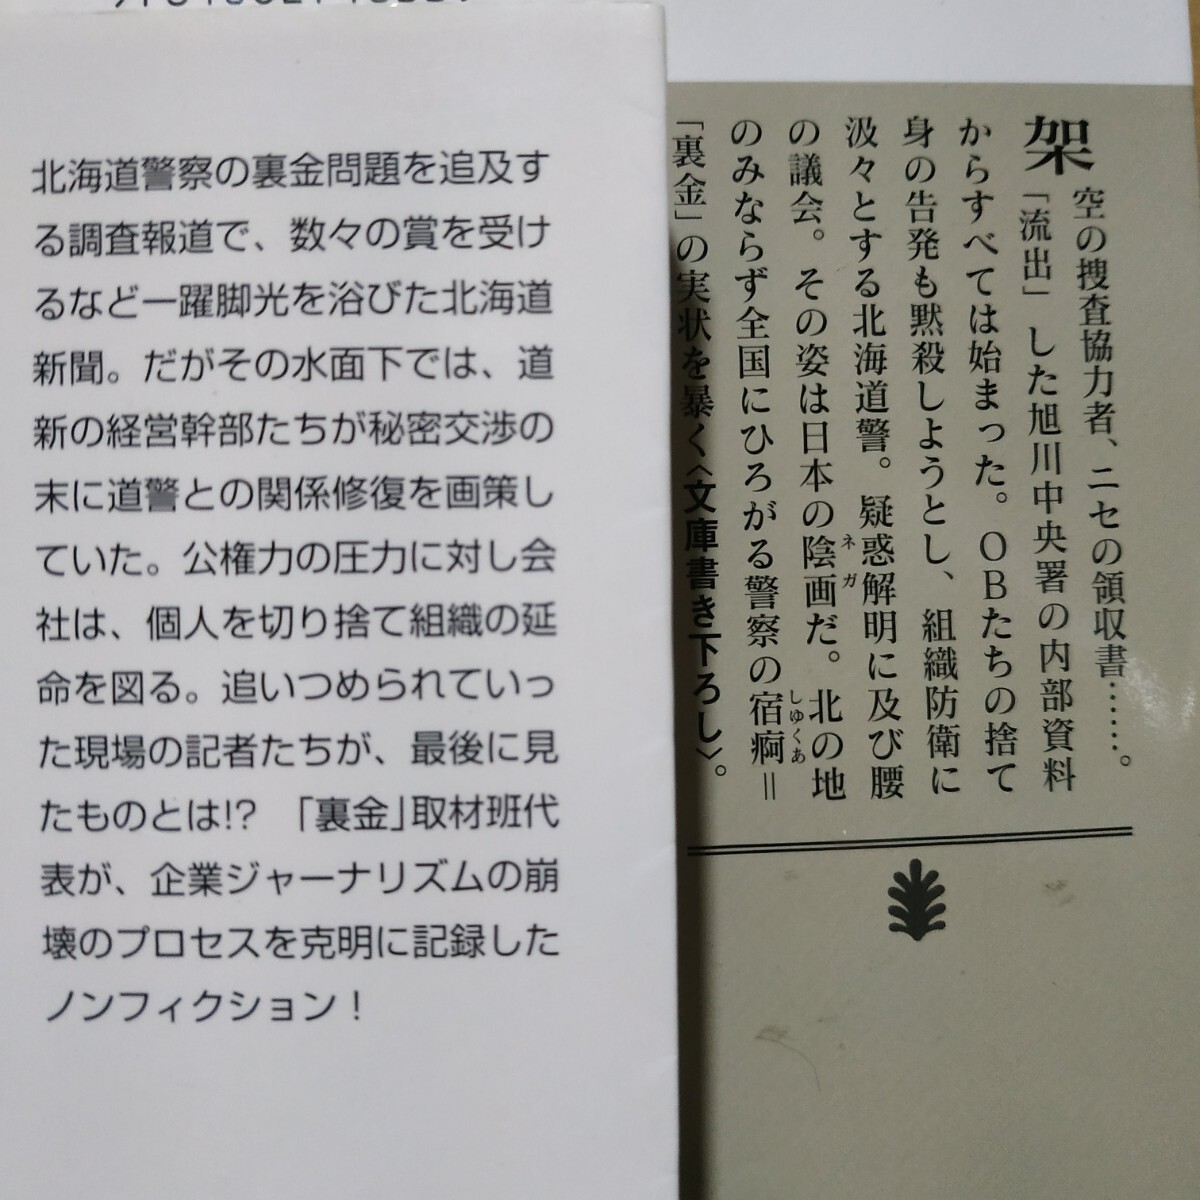 北海道警察の裏金問題を追及す
る調査報道で、数々の賞を受け
るなど一躍脚光を浴びた北海道
新聞。だがその水面下では、道
新の経営幹部たちが秘密交渉の
末に道警との関係修復を画策し
ていた。公権力の圧力に対し会
社は、個人を切り捨て組織の延
命を図る。追いつめられていっ
た現場の記者たちが、最後に見
たものとは!?　「裏金」取材班代
表が、企業ジャーナリズムの崩
壊のプロセスを克明に記録した
ノンフィクション！
架空の捜査協力者、ニセの領収書……。
「流出」した旭川中央署の内部資料
からすべては始まった。ＯＢたちの捨て
身の告発も黙殺しようとし、組織防衛に
汲々とする北海道警。疑惑解明に及び腰
の議会。その姿は日本の陰画だ。北の地
ネガ
のみならず全国にひろがる警察の宿痾＝
しゅくあ
「裏金」の実状を暴く〈文庫書き下ろし〉。